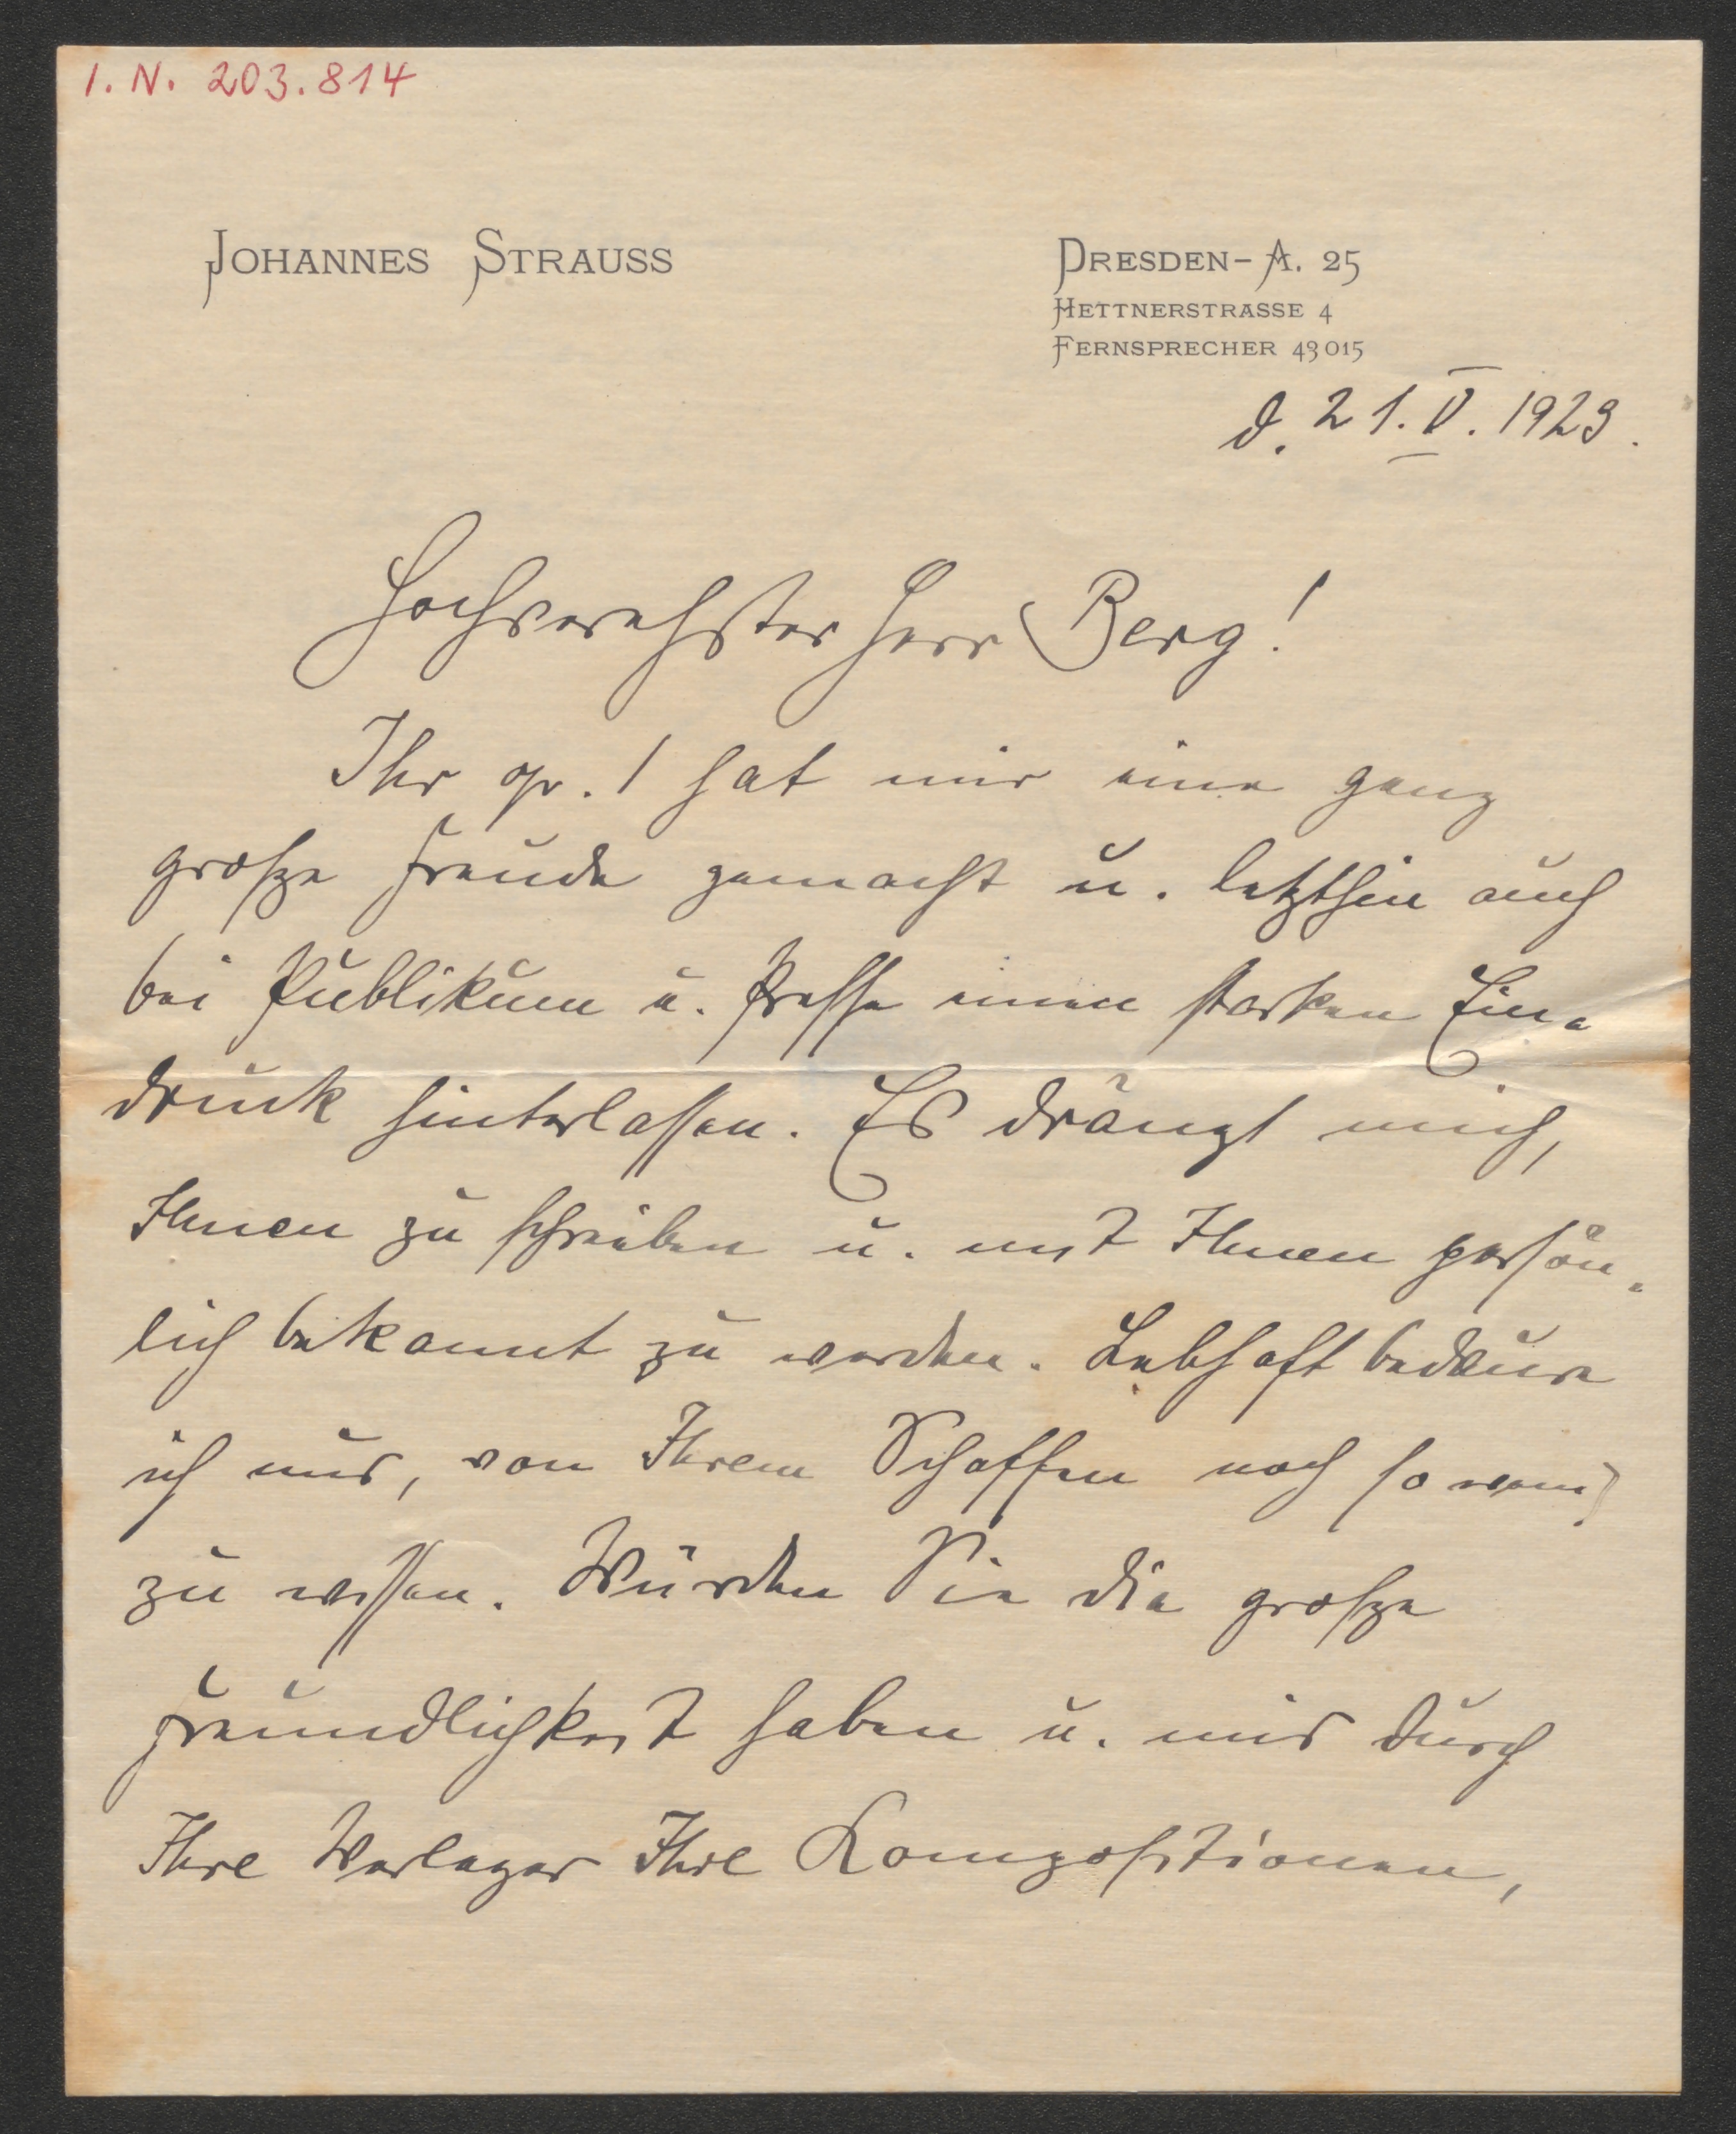 I. N. 203.814
JOHANNES STRAUSS
DRESDEN-A. 25
HETTNERSTRASSE 4
FERNSPRECHER 43015
d. 21. V. 1923.
Hochverehrter Herr Berg!
Ihr op. 1 hat mir eine ganz
große Freude gemacht u. letzthin auch
bei Publikum u. Presse einen starken Ein-
druck hinterlassen. Es drängt mich,
Ihnen zu schreiben u. mit Ihnen persön-
lich bekannt zu werden. Lebhaft bedaure
ich nur, von Ihrem Schaffen noch so wenig
zu wissen. Würden Sie die große
Freundlichkeit haben u. mir durch
Ihre Verleger Ihre Kompositionen,